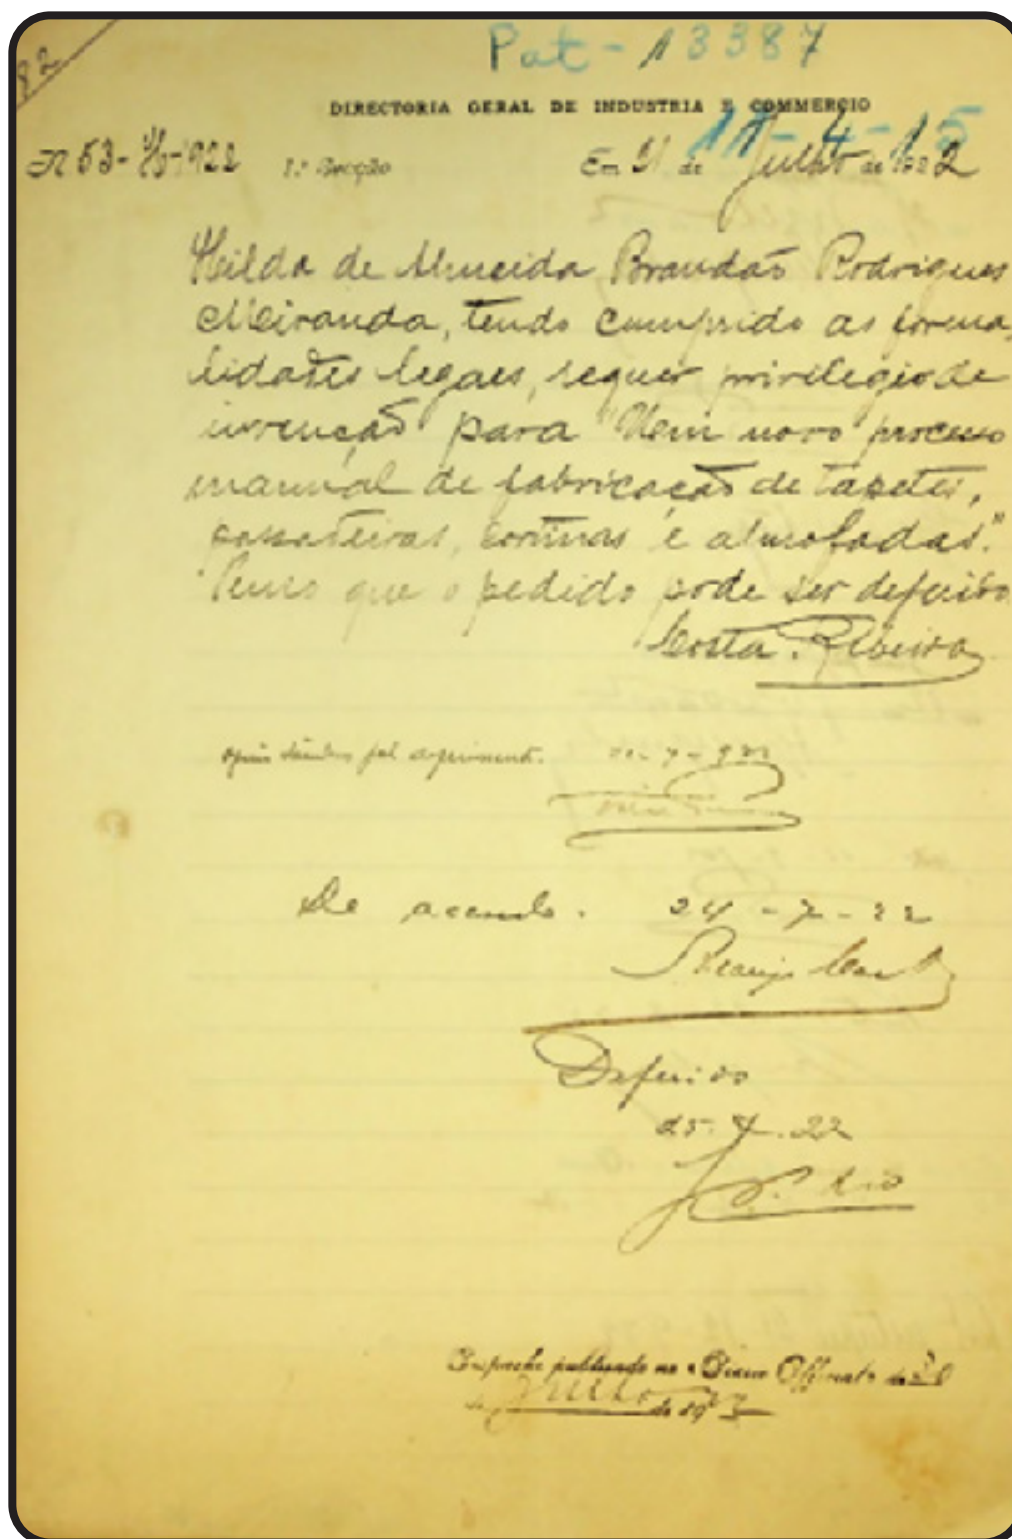 Pat - 13387
DIRECTORIA GERAL DE INDUSTRIA E COMMERCIO
11-4-15
N 53 - 922 1.ª Secção Em 21 de Julho de 1922
Hilda de Almeida Brandão Rodrigues
Miranda, tendo cumprido as forma
lidades legaes, requer privilegio de
invenção para "Um novo processo
manual de fabricação de tapetes,
passadeiras, cortinas e almofadas."
Penso que o pedido pode ser deferido
Costa Ribeiro
7 - 922
De accordo. 24 - 7 - 22
Deferido
25.7.22
Despacho publicado no «Diario Official» de
de Julho de 19